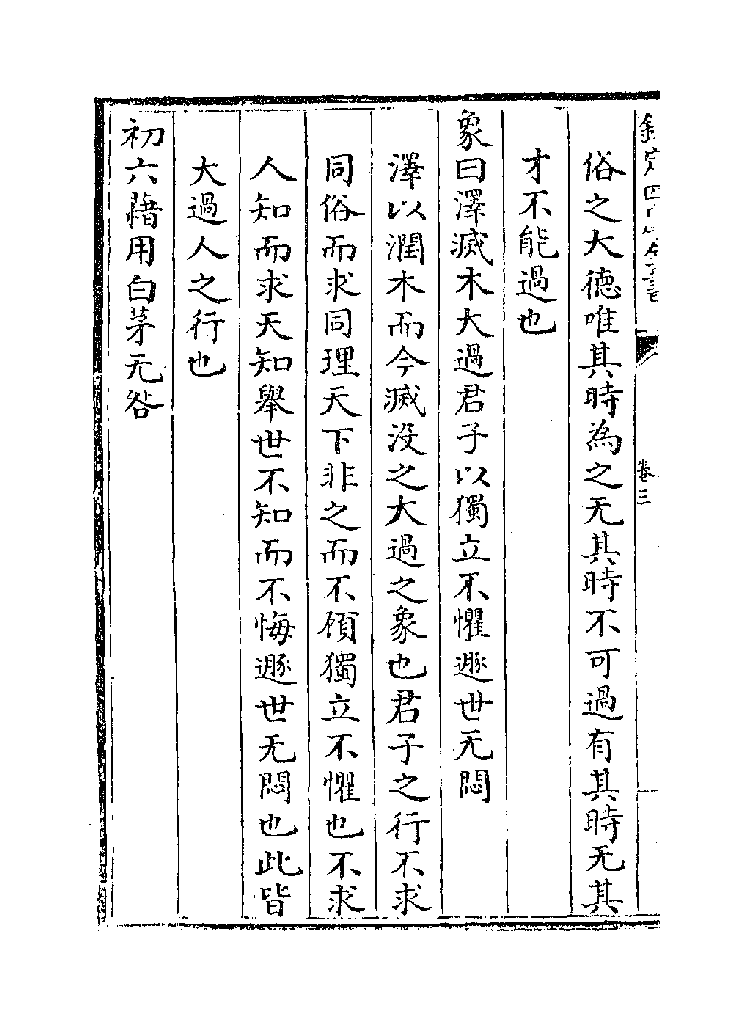 欽定四庫全書
卷三
俗之大德唯其時為之无其時不可過有其時无其
才不能過也
象曰澤滅木大過君子以獨立不懼遯世无悶
澤以潤木而今滅没之大過之象也君子之行不求
同俗而求同理天下非之而不顧獨立不懼也不求
人知而求天知舉世不知而不悔遯世无悶也此皆
大過人之行也
初六藉用白茅无咎